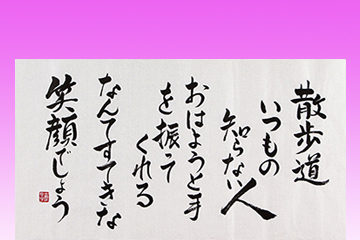 散歩道
いつもの
知らない人
おはようと手
を振って
くれる
なんてすてきな
笑顔でしょう